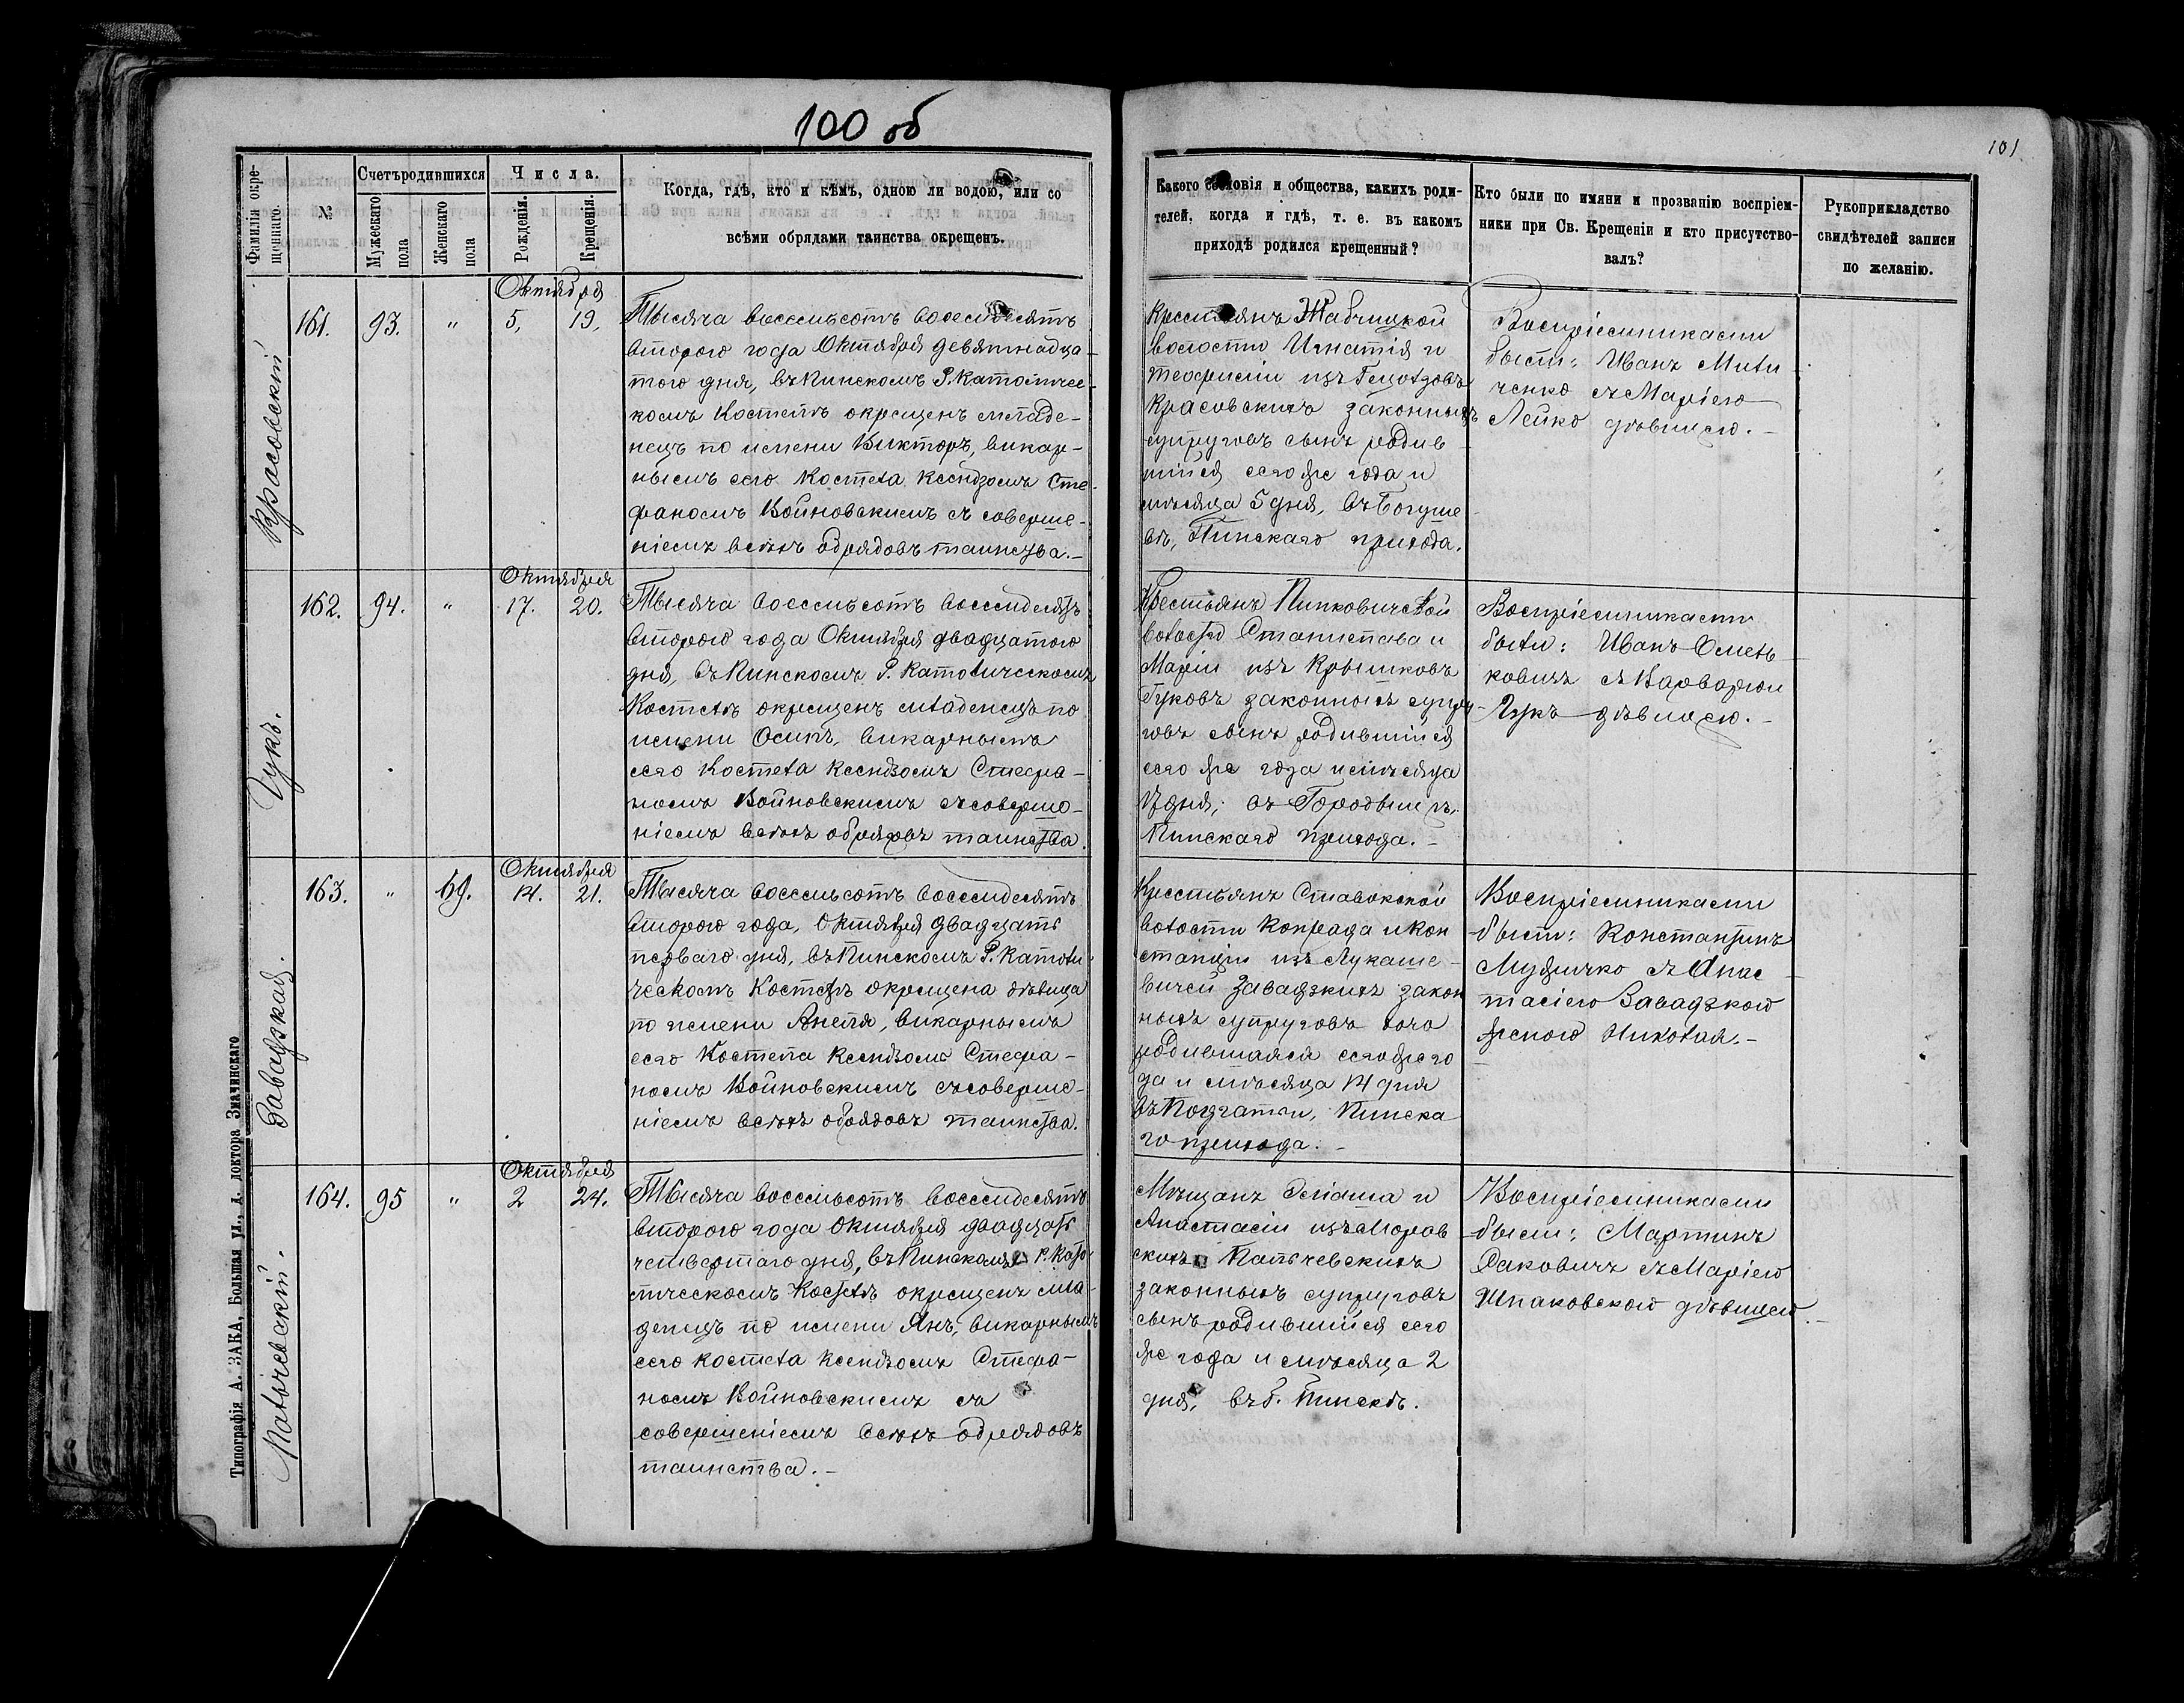 100 об
101
Фамилія окрещеннаго.
№
Счетъ родившихся
Мужескаго пола
Женскаго пола
Числа.
Рожденія.
Крещенія.
Когда, гдѣ, кто и кѣмъ, одною ли водою, или со
всѣми обрядами таинства окрещенъ.
Какого сословія и общества, какихъ роди-
телей, когда и гдѣ, т. е. въ какомъ
приходѣ родился крещенный?
Кто были по имяни и прозванію воспріем-
ники при Св. Крещеніи и кто присутство-
валъ?
Рукоприкладство
свидѣтелей записи
по желанію.
Красовскій
Октября
161. 93. " 5, 19,
Тысяча восемьсотъ восемдесятъ
втораго года Октября девятнадца-
того дня, въ Пинскомъ Р. Католичес-
комъ Костелѣ окрещенъ младе-
нецъ по имени Викторъ, викар-
нымъ сего Костела Ксендзомъ Сте-
фаномъ Войновскимъ съ соверше-
ніемъ всѣхъ обрядовъ таинства.-
Крестьянъ Жабчицкой
волости Игнатія и
Теофиліи изъ
Красовскихъ законныхъ
супруговъ сынъ родив
шійся сего же года и
мѣсяца 5 дня, въ Богуше
вѣ, Пинскаго прихода.
Воспріемниками
были: Иванъ Мити-
ченко съ Маріею
Лейко дѣвицею.-
Гукъ.
Октября
162. 94. " 17. 20.
Тысяча восемьсотъ восемдесятъ
втораго года Октября двадцатого
дня, въ Пинскомъ Р. Католическомъ
Костелѣ окрещенъ младенецъ по
имени Осипъ, викарнымъ
сего Костела Ксендзомъ Стефа-
номъ Войновскимъ съ соверше-
ніемъ всѣхъ обрядовъ таинства.
Крестьянъ Пинковичской
волости Станислава и
Маріи изъ Крышковъ
Гуковъ законныхъ супру-
говъ сынъ родившійся
сего же года и мѣсяца
17 дня, въ
Пинскаго прихода.-
Воспріемниками
были: Иванъ Омель-
ковичъ съ Варварою
Гукъ дѣвицею.-
Завадзкая.
Октября
163. " 69. 14. 21.
Тысяча восемьсотъ восемдесятъ
втораго года, Октября двадцать
перваго дня, въ Пинскомъ Р. Католи-
ческомъ Костелѣ окрещена дѣвица
по имени Анеля, викарнымъ
сего Костела Ксендзомъ Стефа-
номъ Войновскимъ съ соверше-
ніемъ всѣхъ обрядовъ таинства.
Крестьянъ Ставокской
волости Конрада и Кон
станціи изъ Лукаше-
вичей Завадзкихъ закон
ныхъ супруговъ дочь
родившаяся сего же го
да и мѣсяца 14 дня
въ Погратли, Пинска
го прихода.-
Воспріемниками
были: Константинъ
съ Анас-
тасіею Завадзкою
женою Николая.-
Мальчевскій.
Октября
164. 95 " 2 24.
Тысяча восемьсотъ восемдесятъ
втораго года Октября двадцать
четвертаго дня, въ Пинскомъ Р. Като-
лическомъ Костелѣ окрещенъ мла-
денецъ по имени Янъ, викарнымъ
сего костела Ксендзомъ Стефа-
номъ Войновскимъ съ
совершеніемъ всѣхъ обрядовъ
таинства.-
Мѣщанъ и
Анастасіи изъ Моров
скихъ Мальчевскихъ
законныхъ супруговъ
сынъ родившійся сего
же года и мѣсяца 2
дня, въ г. Пинскѣ.
Воспріемниками
были: Мартинъ
Раковичъ съ Маріею
Шпаковскою дѣвицею.-
Типографія А. ЗАКА, Большая ул., д. доктора Знаминскаго